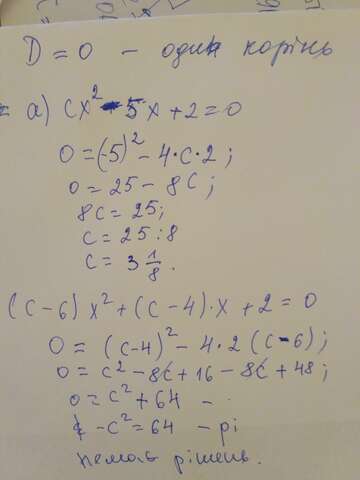 D = 0 - один корінь
а) cx² - 5x + 2 = 0
0 = (-5)² - 4·c·2;
0 = 25 - 8c;
8c = 25;
c = 25 : 8
c = 3 1/8.
(c-6) x² + (c-4)·x + 2 = 0
0 = (c-4)² - 4·2 (c-6);
0 = c² - 8c + 16 - 8c + 48;
0 = c² + 64 -
-c² = 64 - рі
немає рішень.